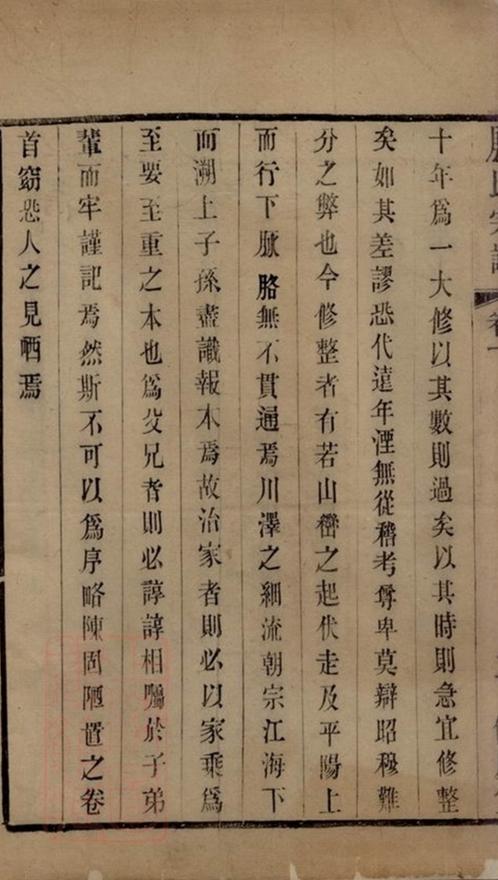 十年爲一大修以其數則過矣以其時則急宜修整
矣如其差謬恐代遠年湮無從稽考尊卑莫辯昭穆難
分之弊也今修整者有若山巒之起伏走及平陽上
而行下脈胳無不貫通焉川澤之細流朝宗江海下
而溯上子孫盡識報本焉故治家者則必以家乘爲
至要至重之本也爲父兄者則必諄諄相囑於子弟
輩而牢謹記焉然斯不可以爲序略陳固陋置之卷
首窈恐人之見哂焉